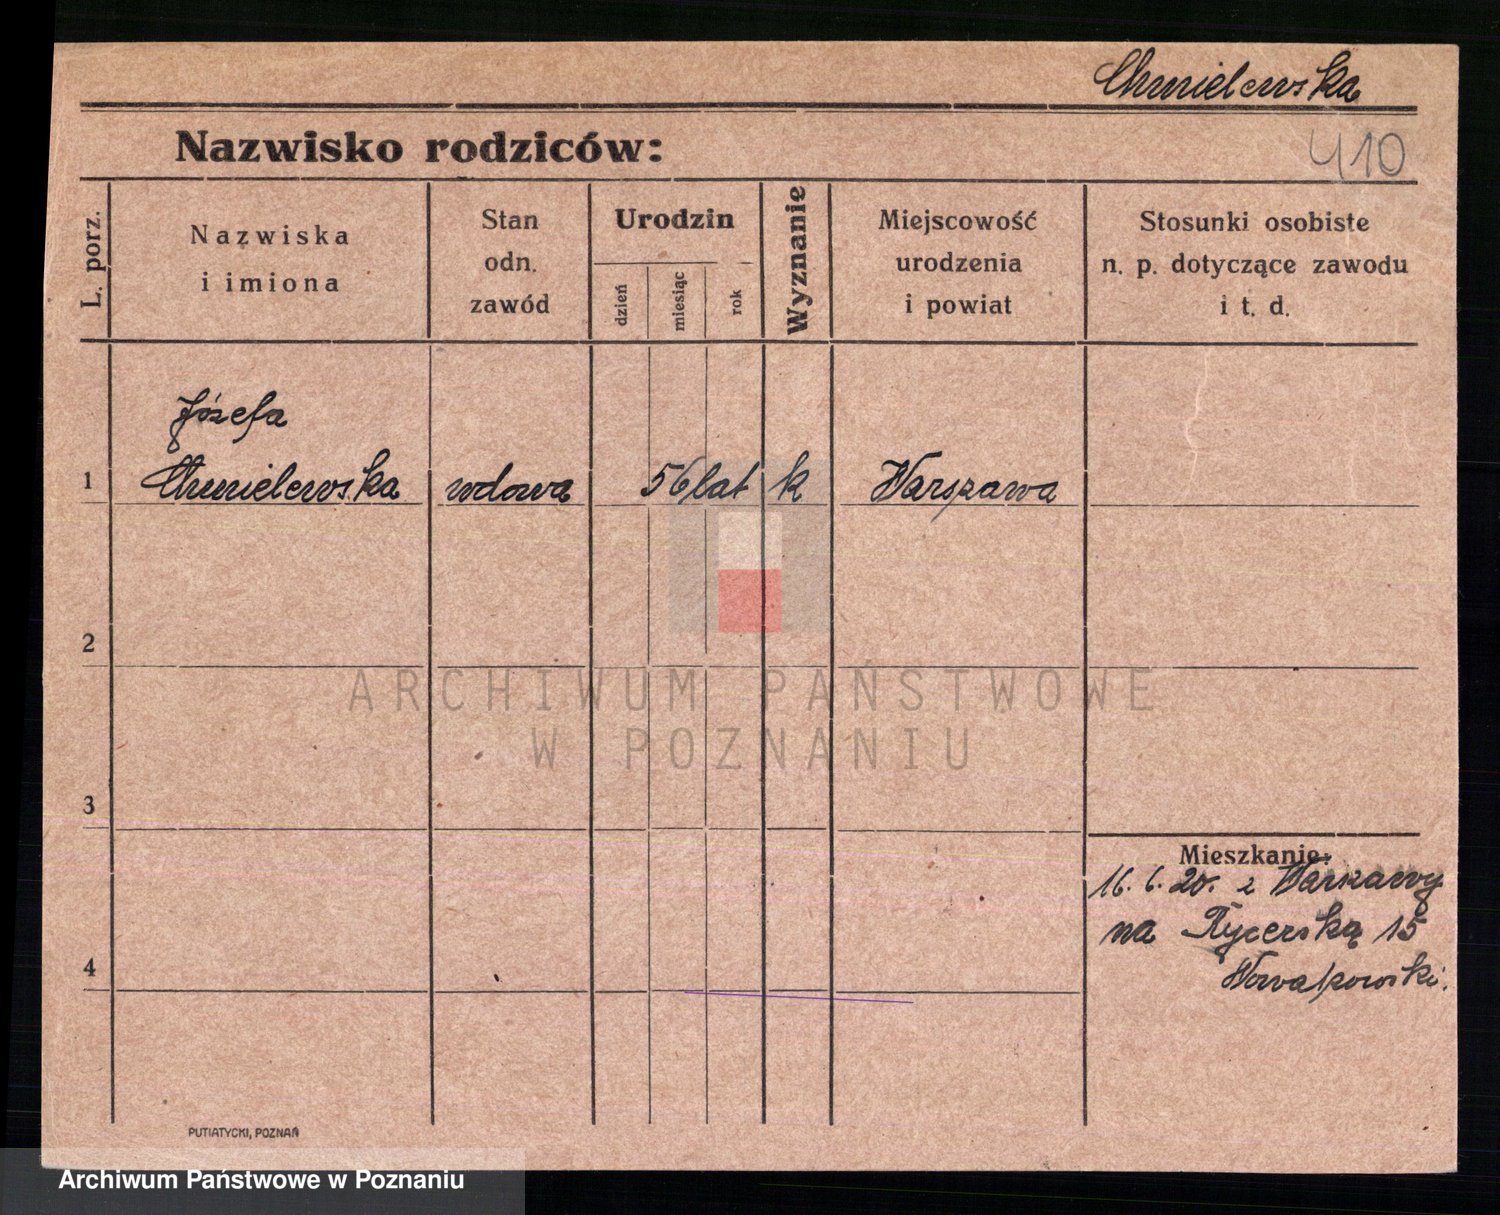 Chmielewska
410
Nazwisko rodziców:
L. porz.
Nazwiska
i imiona
Stan
odn.
zawód
Urodzin
dzień
miesiąc
rok
Wyznanie
Miejscowość
urodzenia
i powiat
Stosunki osobiste
n. p. dotyczące zawodu
i t. d.
Józefa
1 Chmielewska wdowa 56 lat k Warszawa
2
ARCHIWUM PAŃSTWOWE
W POZNANIU
3
Mieszkanie:
16. 6. 20. z Warszawy
na Rycerską 15
4
Nowakowski.
PUTIATYCKI, POZNAŃ
Archiwum Państwowe w Poznaniu